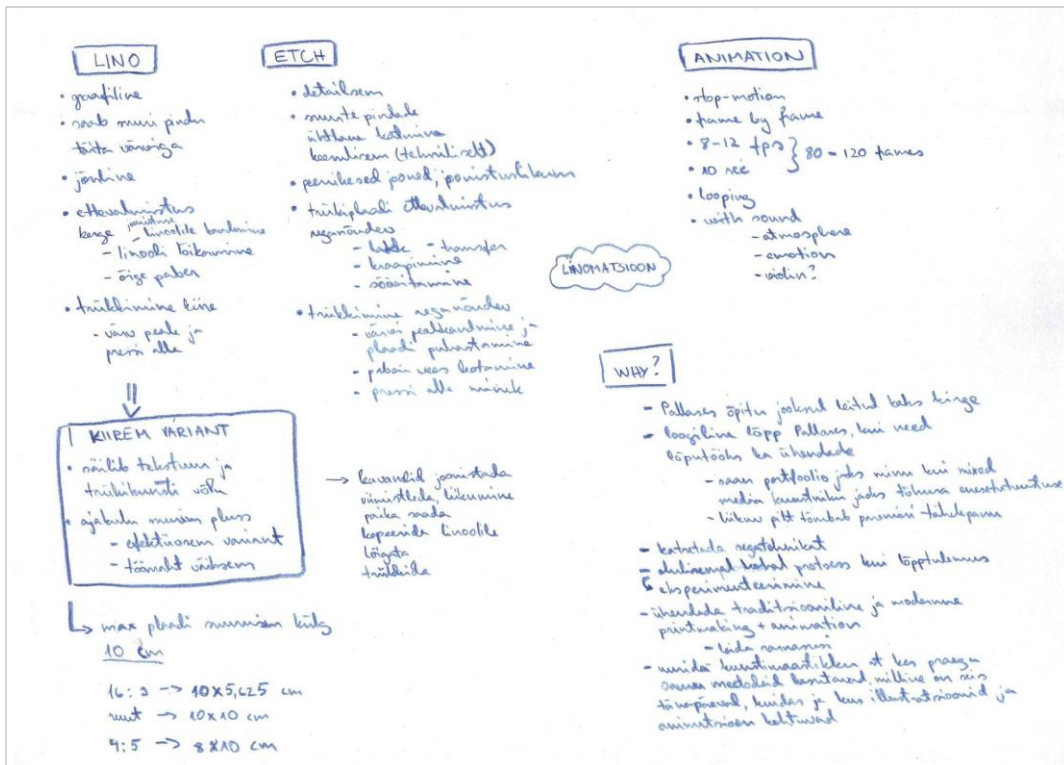 LINO
• graafiline
• saab suuri pindu
täita värviga
• jõuline
• ettevalmistus
kerge
- joonistuse linoolile kandmine
- linooli lõikamine
- õige paber
• trükkimine kiire
- värv peale ja
pressi alla
KIIREM VARIANT
• säilib tekstuur ja
trükikunsti võlu
• ajakulu suurim pluss
- efektiivsem variant
- töömaht väiksem
max plaadi suurem külg
10 cm
16:9 -> 10x5,625 cm
ruut -> 10x10 cm
4:5 -> 8x10 cm
ETCH
• detailsem
• suurte pindade
ühtlane katmine
keerulisem (tehniliselt)
• peenikesed jooned, joonistuslikkus
• trükiplaadi ettevalmistus
aeganõudev
- transfer
- kraapimine
- söövitamine
• trükkimine aeganõudev
- värvi pealekandmine ja
plaadi puhastamine
- paberi vees leotamine
- pressi alla minek
-> kavandid joonistada
viimistleda, liikumine
paika saada
kopeerida linoolile
lõigata
trükkida
LINOMATSIOON
ANIMATION
• stop-motion
• frame by frame
• 8-12 fps } 80-120 frames
• 10 sec
• looping
• with sound
- atmosphere
- emotion
- violin?
WHY?
- Pallases õpitu jooksul leitud kaks kirge
- loogiline lõpp Pallases, kui need
lõputööks ka ühendada
- saan portfoolio jaoks minu kui mixed
media kunstniku jaoks tõhusa enesetutvustuse
- liikuv pilt tõmbab paremini tähelepanu
- katsetada segatehnikat
- protsess kui lõpptulemus
eksperimenteerimine
- ühendada traditsiooniline ja modernne
printmaking + animation
- leida sarnasusi
- uurida kunstimaastikku, et kes praegu
samu meetodeid kasutavad, milline on seis
tänapäeval, kuidas ja kus illustratsioonid ja
animatsioon kohtuvad